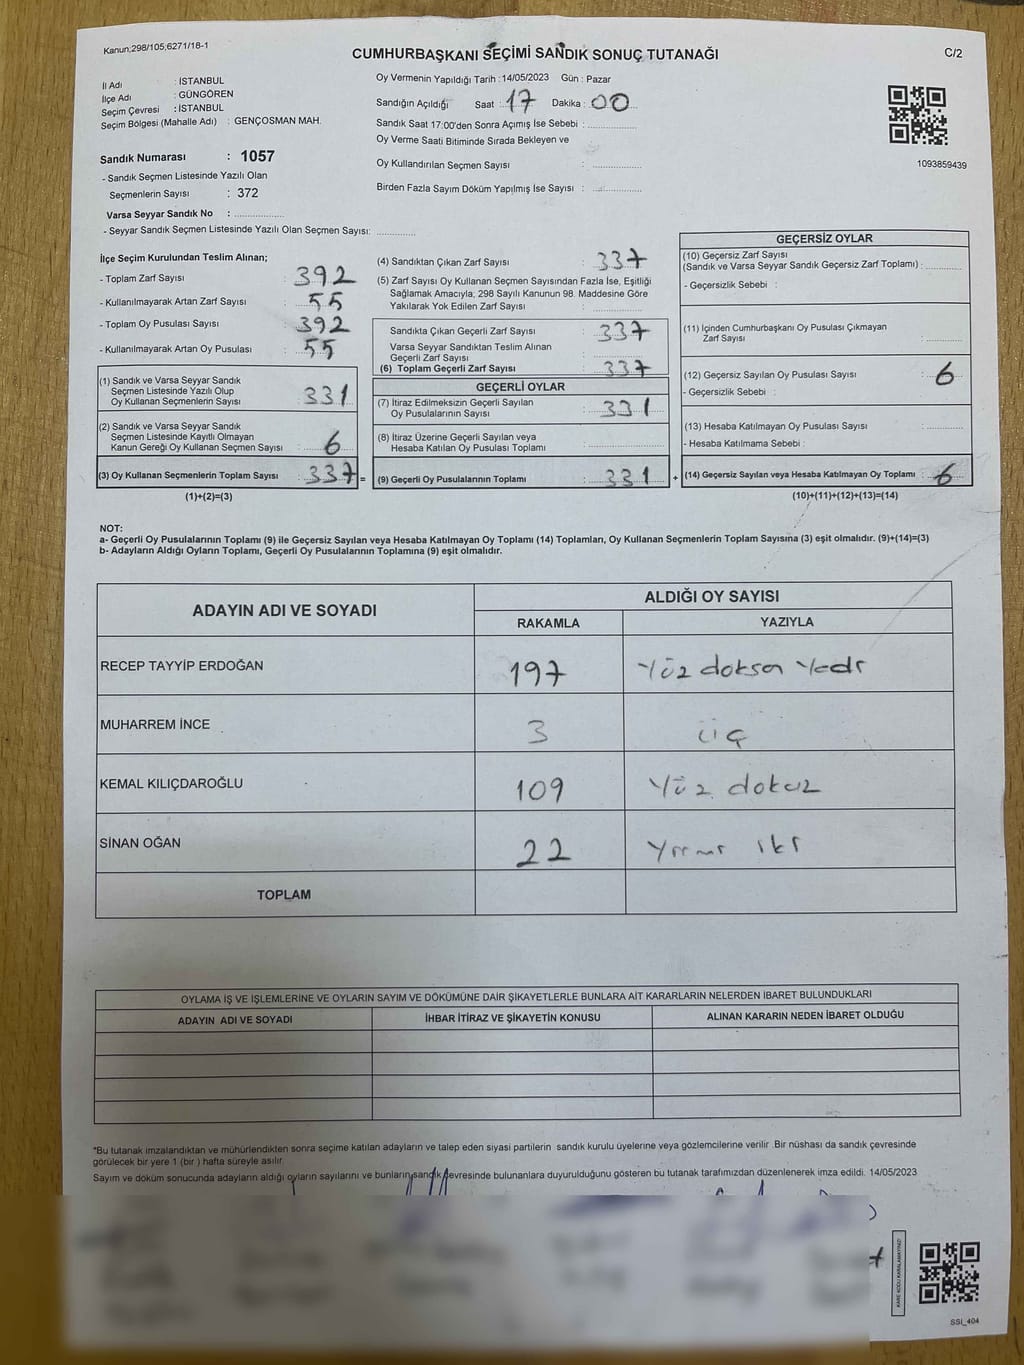 Kanun;298/105;6271/18-1
CUMHURBAŞKANI SEÇİMİ SANDIK SONUÇ TUTANAĞI
C/2
İl Adı : İSTANBUL
İlçe Adı : GÜNGÖREN
Seçim Çevresi : İSTANBUL
Seçim Bölgesi (Mahalle Adı) : GENÇOSMAN MAH.
Sandık Numarası : 1057
- Sandık Seçmen Listesinde Yazılı Olan
Seçmenlerin Sayısı : 372
Varsa Seyyar Sandık No : ................
- Seyyar Sandık Seçmen Listesinde Yazılı Olan Seçmen Sayısı: ............
Oy Vermenin Yapıldığı Tarih : 14/05/2023 Gün : Pazar
Sandığın Açıldığı Saat : 17 Dakika : 00
Sandık Saat 17:00'den Sonra Açımış İse Sebebi : ................
Oy Verme Saati Bitiminde Sırada Bekleyen ve
Oy Kullandırılan Seçmen Sayısı : ................
Birden Fazla Sayım Döküm Yapılmış İse Sayısı : ................
1093859439
İlçe Seçim Kurulundan Teslim Alınan;
- Toplam Zarf Sayısı : 392
- Kullanılmayarak Artan Zarf Sayısı : 55
- Toplam Oy Pusulası Sayısı : 392
- Kullanılmayarak Artan Oy Pusulası : 55
(1) Sandık ve Varsa Seyyar Sandık
Seçmen Listesinde Yazılı Olup
Oy Kullanan Seçmenlerin Sayısı : 331
(2) Sandık ve Varsa Seyyar Sandık
Seçmen Listesinde Kayıtlı Olmayan
Kanun Gereği Oy Kullanan Seçmen Sayısı : 6
(3) Oy Kullanan Seçmenlerin Toplam Sayısı : 337 =
(1)+(2)=(3)
(4) Sandıktan Çıkan Zarf Sayısı : 337
(5) Zarf Sayısı Oy Kullanan Seçmen Sayısından Fazla İse, Eşitliği
Sağlamak Amacıyla; 298 Sayılı Kanunun 98. Maddesine Göre
Yakılarak Yok Edilen Zarf Sayısı : ................
Sandıkta Çıkan Geçerli Zarf Sayısı : 337
Varsa Seyyar Sandıktan Teslim Alınan
Geçerli Zarf Sayısı : ................
(6) Toplam Geçerli Zarf Sayısı : 337
GEÇERLİ OYLAR
(7) İtiraz Edilmeksizin Geçerli Sayılan
Oy Pusulalarının Sayısı : 331
(8) İtiraz Üzerine Geçerli Sayılan veya
Hesaba Katılan Oy Pusulası Toplamı : ................
(9) Geçerli Oy Pusulalarının Toplamı : 331 +
GEÇERSİZ OYLAR
(10) Geçersiz Zarf Sayısı
(Sandık ve Varsa Seyyar Sandık Geçersiz Zarf Toplamı) : ............
- Geçersizlik Sebebi :
(11) İçinden Cumhurbaşkanı Oy Pusulası Çıkmayan
Zarf Sayısı : ............
(12) Geçersiz Sayılan Oy Pusulası Sayısı : 6
- Geçersizlik Sebebi :
(13) Hesaba Katılmayan Oy Pusulası Sayısı : ............
- Hesaba Katılmama Sebebi :
(14) Geçersiz Sayılan veya Hesaba Katılmayan Oy Toplamı : 6
(10)+(11)+(12)+(13)=(14)
NOT:
a- Geçerli Oy Pusulalarının Toplamı (9) ile Geçersiz Sayılan veya Hesaba Katılmayan Oy Toplamı (14) Toplamları, Oy Kullanan Seçmenlerin Toplam Sayısına (3) eşit olmalıdır. (9)+(14)=(3)
b- Adayların Aldığı Oyların Toplamı, Geçerli Oy Pusulalarının Toplamına (9) eşit olmalıdır.
ADAYIN ADI VE SOYADI
ALDIĞI OY SAYISI
RAKAMLA YAZIYLA
RECEP TAYYİP ERDOĞAN 197 Yüz doksan Yedi
MUHARREM İNCE 3 üç
KEMAL KILIÇDAROĞLU 109 Yüz dokuz
SİNAN OĞAN 22 Yirmi iki
TOPLAM
OYLAMA İŞ VE İŞLEMLERİNE VE OYLARIN SAYIM VE DÖKÜMÜNE DAİR ŞİKAYETLERLE BUNLARA AİT KARARLARIN NELERDEN İBARET BULUNDUKLARI
ADAYIN ADI VE SOYADI İHBAR İTİRAZ VE ŞİKAYETİN KONUSU ALINAN KARARIN NEDEN İBARET OLDUĞU
*Bu tutanak imzalandıktan ve mühürlendikten sonra seçime katılan adayların ve talep eden siyasi partilerin sandık kurulu üyelerine veya gözlemcilerine verilir. Bir nüshası da sandık çevresinde
görülecek bir yere 1 (bir ) hafta süreyle asılır.
Sayım ve döküm sonucunda adayların aldığı oyların sayılarını ve bunların sandık çevresinde bulunanlara duyurulduğunu gösteren bu tutanak tarafımızdan düzenlenerek imza edildi. 14/05/2023
KARE KODU KARALAMAYINIZ!
SSI_404